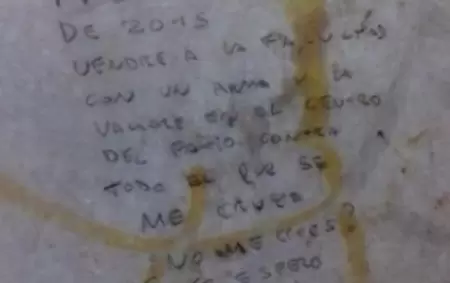 DE 2015
VENDRE A LA FACULTAD
CON UN ARMA Y LA
EN EL CENTRO
DEL PATIO CONTRA
TODO EL QUE SE
ME CRUCE
NO ME CREES?
ESPERO